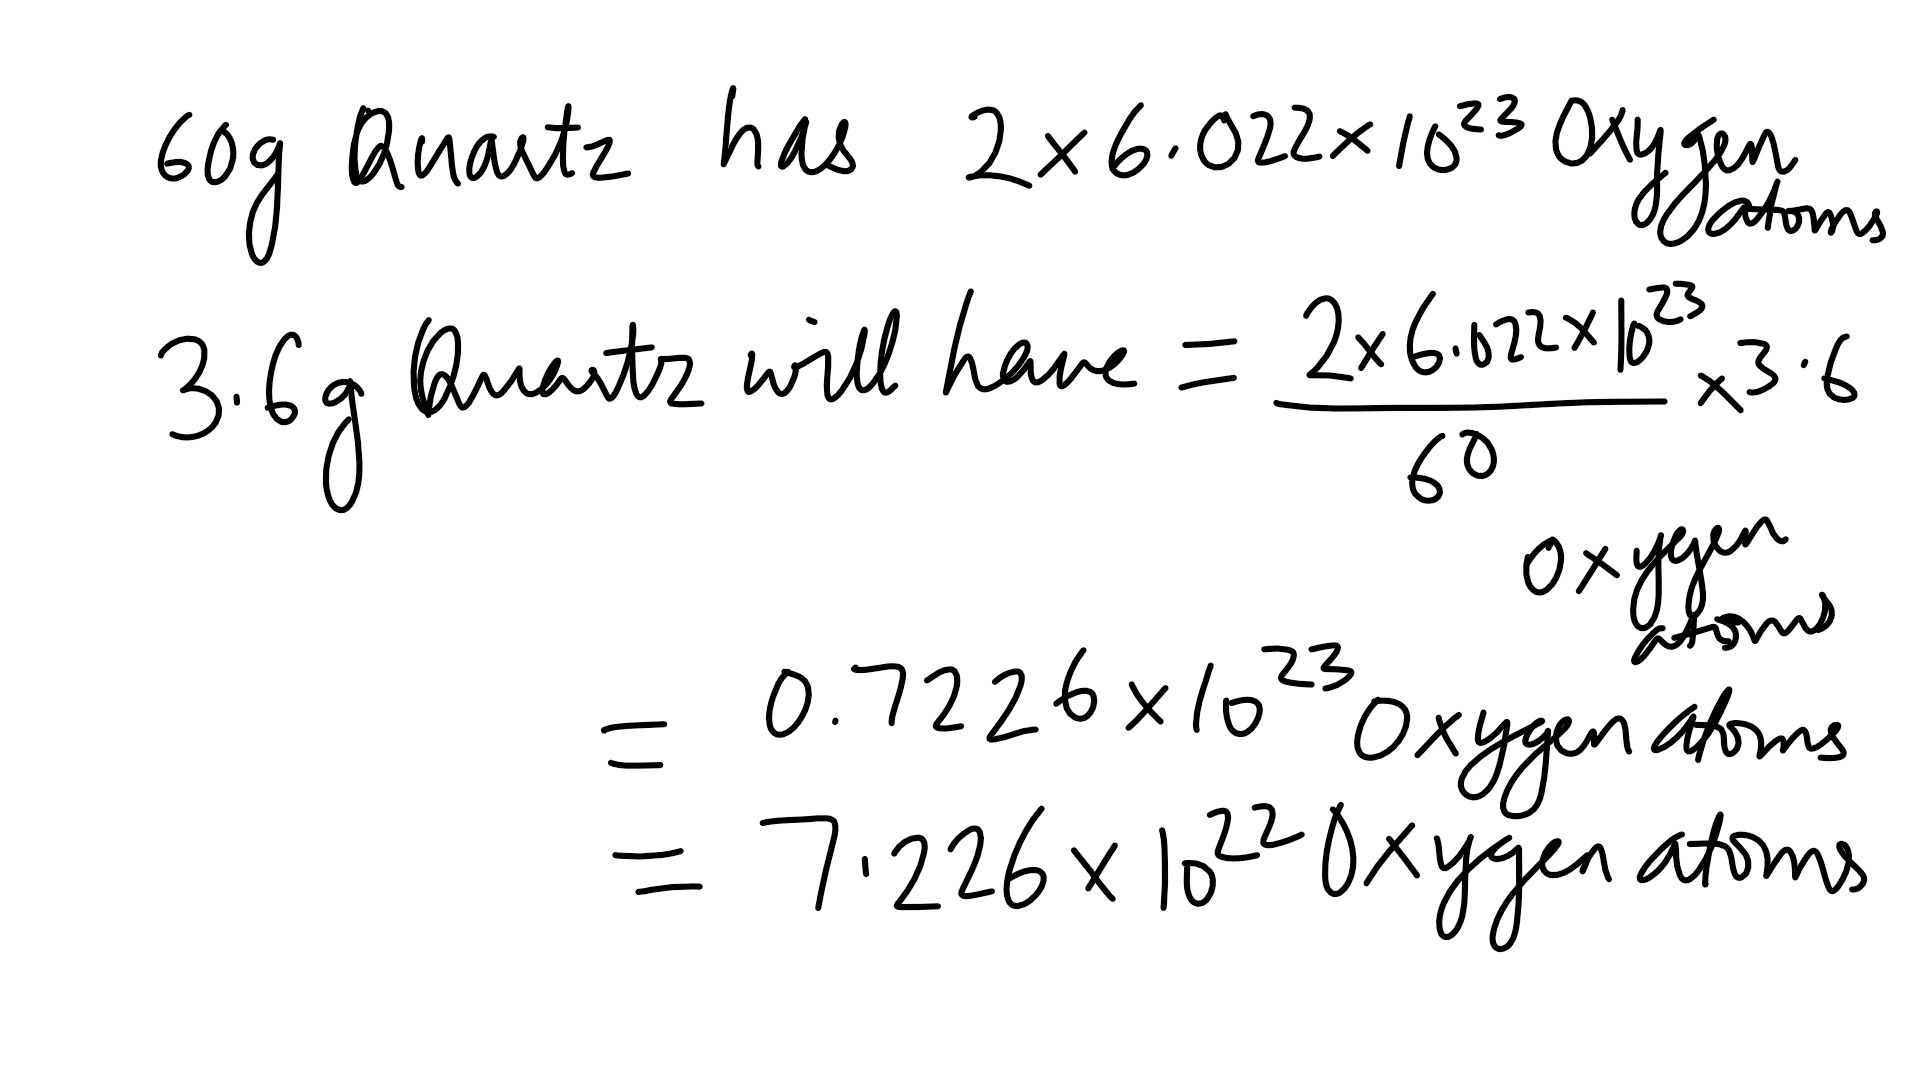 60g Quartz has 2×6.022×10²³ Oxygen atoms
3.6g Quartz will have = 2×6.022×10²³ / 60 ×3.6
Oxygen atoms
= 0.7226×10²³ Oxygen atoms
= 7.226×10²² Oxygen atoms